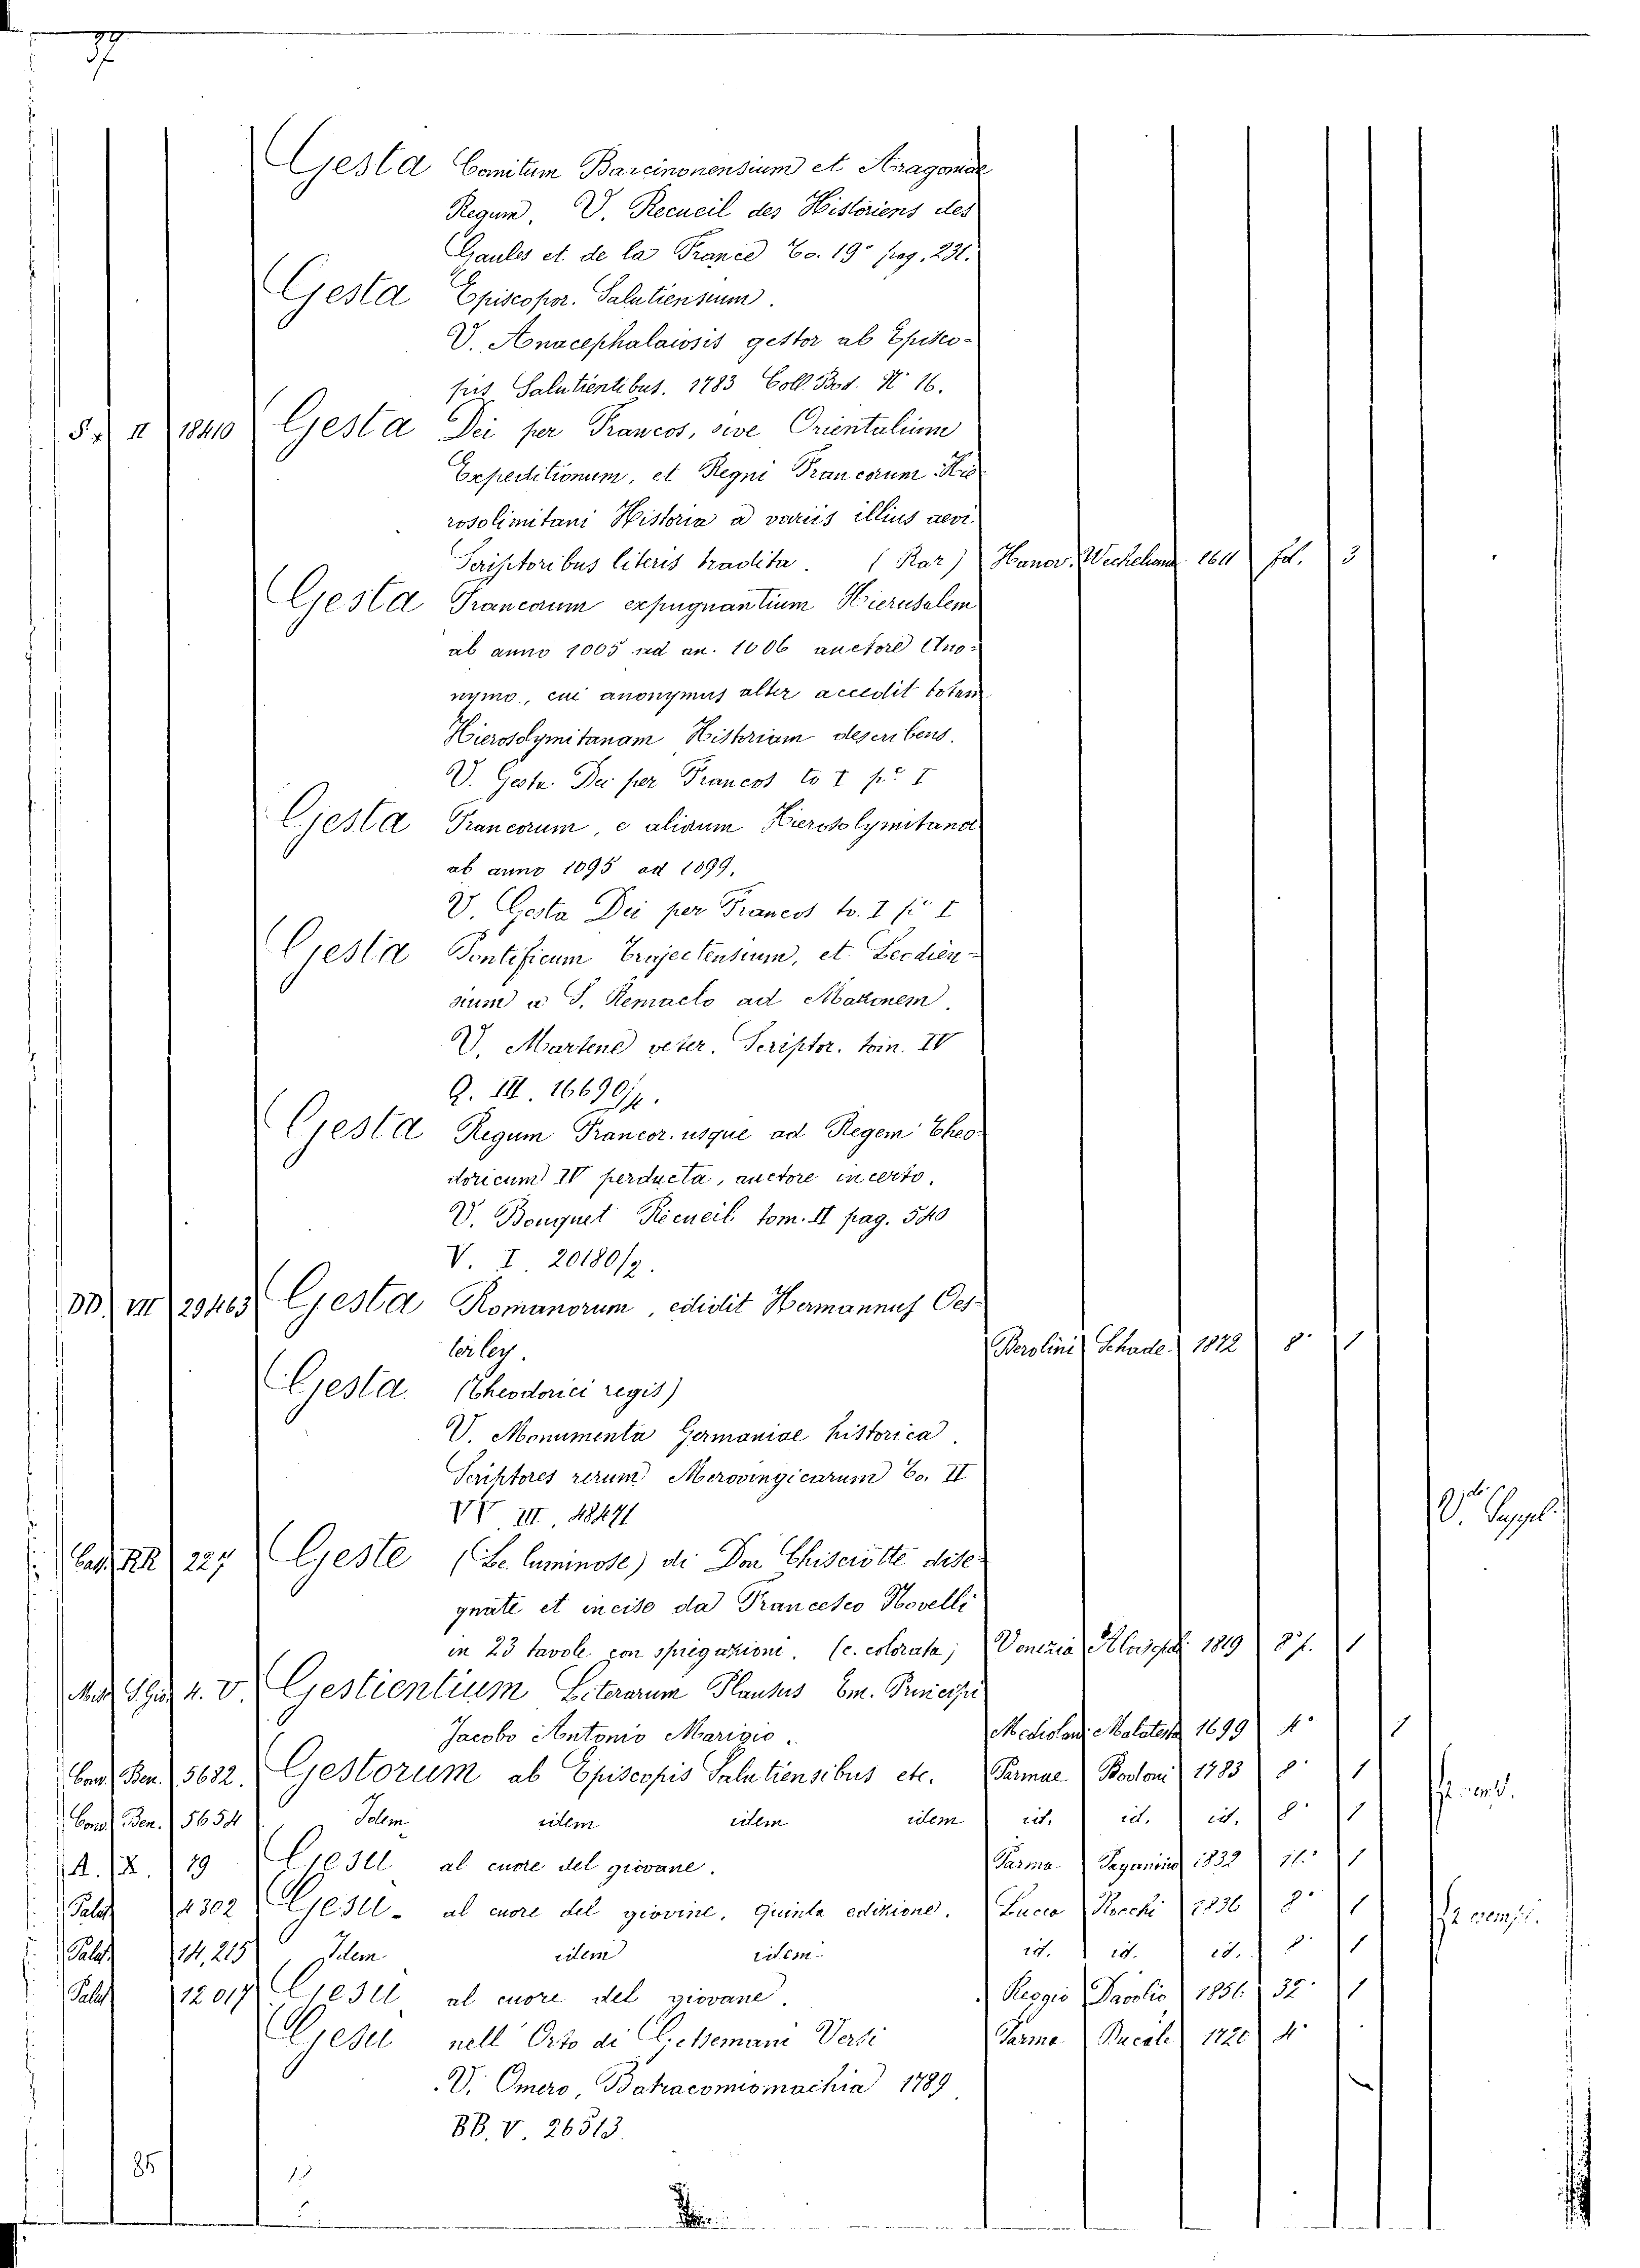 37
Gesta Comitum Barcinonensium et Aragoniae
Regum, V. Recueil des Historiens des
Gaules et de la France To. 19° pag. 231.
Gesta Episcopor. Salutiensium.
V. Anacephalaiosis gestor ab Episco-
pis Salutientibus. 1783 Coll. Bod. N° 16.
S. II 18410 Gesta Dei per Francos, sive Orientalium
Expeditionum, et Regni Francorum Hie
rosolimitani Historia a variis illius aevi
Scriptoribus literis tradita. (Rar) Hanov. Wechelian 1611 fol. 3
Gesta Francorum expugnantium Hierusalem
ab anno 1005 ad an. 1006 auctore Ano-
nymo, cui anonymus alter accedit totam
Hierosolymitanam Historiam describens.
V. Gesta Dei per Francos to I p.e I
Gesta Francorum, e aliorum Hierosolymitana
ab anno 1095 ad 1099.
V. Gesta Dei per Francos to. I p.e I
Gesta Pontificum Trajectensium, et Leodien-
sium a S. Remaclo ad Matonem.
V. Martene veter. Scriptor. tom. IV
Q. III. 16690/4.
Gesta Regum Francor. usque ad Regem Theo-
doricum IV perducta, auctore incerto.
V. Bouquet Recueil tom. II pag. 540
V. I. 20180/2.
DD. VII 29463 Gesta Romanorum, edidit Hermannus Oes-
terley. Berolini Schade 1872 8° 1
Gesta. (Theodorici regis)
V. Monumenta Germaniae historica.
Scriptores rerum Merovingicarum To. II
VV. III. 48471
V. Suppl.
Cas. RR 227 Geste (Le luminose) di Don Chisciotte dise-
gnate et incise da Francesco Novelli
in 23 tavole con spiegazione. (c. colorata) Venezia 1819 8° f. 1
4. V. Gestientium Literarum Plausus Em. Principi
Jacobo Antonio Marigio. Mediolani Malatesta 1699 4° 1
Cons. Ben. 5682. Gestorum ab Episcopis Salutiensibus etc. Parmae Bodoni 1783 8° 1
Cons. Ben. 5654 Idem eidem eidem eidem id. id. id. 8° 1
A. X. 19 Gesù al cuore del giovane. Parma Paganino 1832 16° 1
Palat 4302 Gesù - al cuore del giovine. Quinta edizione. Lucca Rocchi 1836 8° 1
2 exempl.
Palat. 14,215 Idem eidem eidem id. id. id. 8° 1
Palat 12017 Gesù al cuore del giovane. Reggio Davolio 1856 32° 1
Gesù nell' Orto di Getsemani Versi Parma Ducale 1720 4°
V. Omero, Batracomiomachia 1789
BB. V. 26513.
85